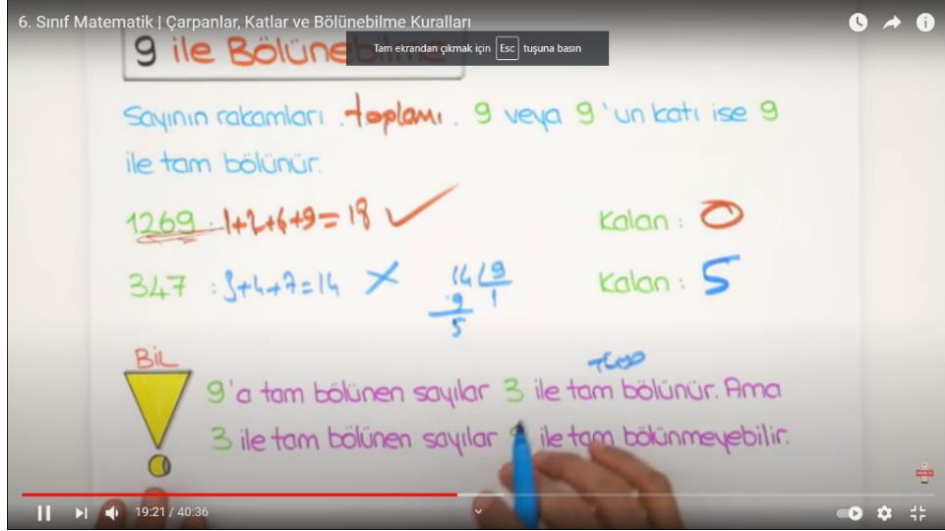 6. Sınıf Matematik | Çarpanlar, Katlar ve Bölünebilme Kuralları
Tam ekrandan çıkmak için Esc tuşuna basın
9 ile Bölünebilme
Sayının rakamları toplamı. 9 veya 9'un katı ise 9
ile tam bölünür.
1269 : 1+2+6+9=18 ✓ Kalan : 0
347 : 3+4+7=14 X Kalan : 5
14 9
9 1
5
BİL
9'a tam bölünen sayılar 3 ile tam bölünür. Ama
3 ile tam bölünen sayılar 9 ile tam bölünmeyebilir.
19:21 / 40:36